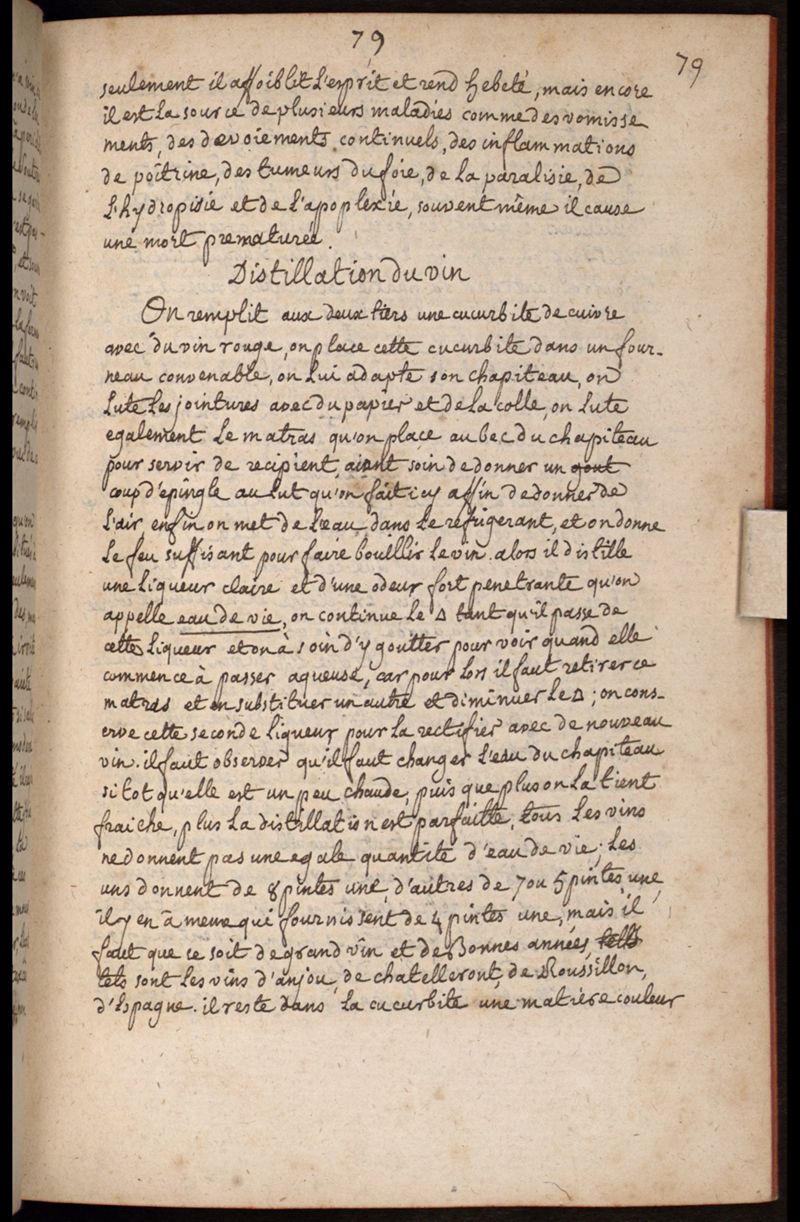 79
79
seulement il affoiblit l'esprit et rend hebeté, mais encore
il est la source de plusieurs maladies comme des vomisse
ments, des devoiements continuels, des inflammations
de poitrine, des tumeurs du foie, de la paralisie, de
l'hydropisie et de l'apoplexie, souvent même il cause
une mort prematurée.
Distillation du vin
On remplit aux deux tiers une cucurbite de cuivre
avec du vin rouge, on place cette cucurbite dans un four-
neau convenable, on lui adapte son chapiteau, on
lute les jointures avec du papier et de la colle, on lute
egalement le matras qu'on place au bec du chapiteau
pour servir de recipient, aiant soin de donner un gout
coup d'epingle au lut qu'on fait icy affin de donner de
l'air enfin on met de l'eau dans le refrigerant, et on donne
le feu suffisant pour faire bouellir le vin. alors il distille
une liqueur claire et d'une odeur fort penetrante qu'on
appelle eau de vie, on continue le △ tant qu'il passe de
cette liqueur et on à soin d'y goutter pour voir quand elle
commence à passer aqueuse, car pour lors il faut retirer ce
matras et en substituer un autre et diminuer le △; on cons-
erve cette seconde liqueur pour la rectifier avec de nouveau
vin. il faut observer qu'il faut changer l'eau du chapiteau
si tot qu'elle est un peu chaude, puis que plus on la tient
fraiche, plus la distillation est parfaitte, tous les vins
ne donnent pas une egale quantité d'eau de vie; les
uns donnent de 8 pintes une, d'autres de 7 ou 5 pintes une,
il y en à meme qui fournissent de 4 pintes une, mais il
faut que ce soit de grand vin et de Bonnes années,
tels sont les vins d'anjou, de chatelleront, de Roussillon,
d'Espagne. il reste dans la cucurbite une matiere couleur